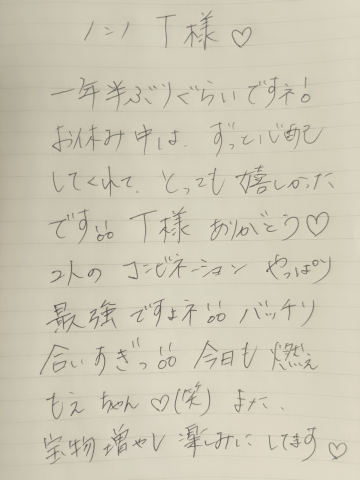 ハンノ T様♡
一年半ぶりぐらいですネ!
お休み中は、ずっと心配
してくれて、とっても嬉しかった
です!! T様 ありがとう♡
2人の コンビネーション やっぱり
最強 ですよネ!! バッチリ
合いすぎっ!! 今日も 燃え
もえ ちゃん♡(笑) また、
宝物増やし 楽しみに してます♡